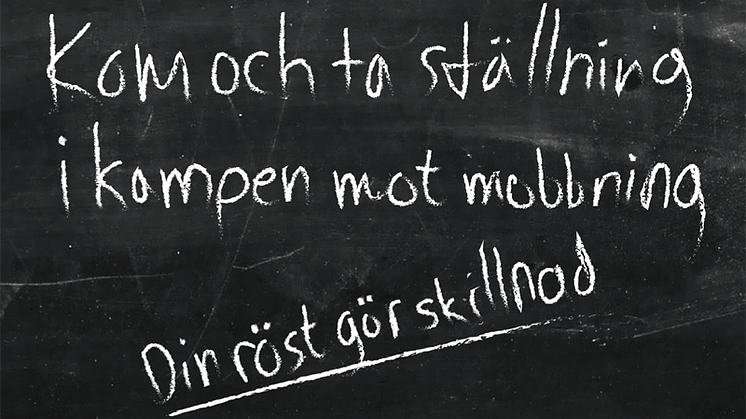 Kom och ta ställning
i kampen mot mobbning
Din röst gör skillnad